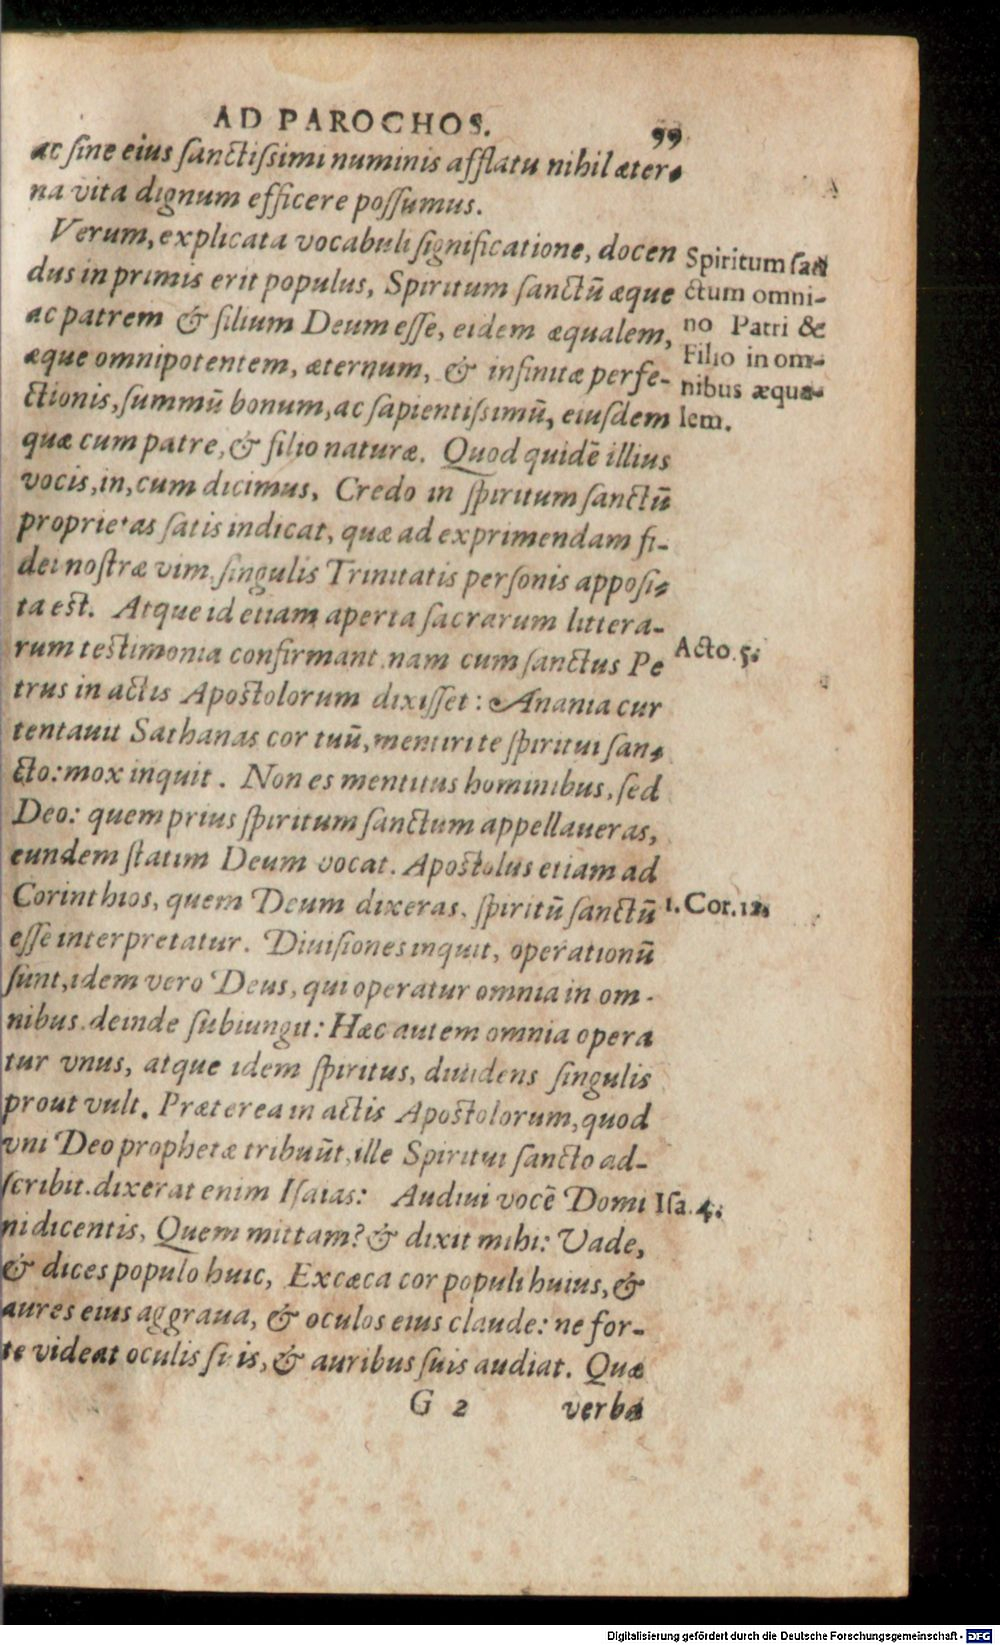 AD PAROCHOS.
99
ac sine eius sanctissimi numinis afflatu nihil æter-
na vita dignum efficere possumus.
Verum, explicata vocabuli significatione, docen
dus in primis erit populus, Spiritum sanctū æque
ac patrem & filium Deum esse, eidem æqualem,
æque omnipotentem, æternum, & infinitæ perfe-
ctionis, summū bonum, ac sapientissimū, eiusdem
quæ cum patre, & filio naturæ. Quod quidē illius
vocis, in, cum dicimus, Credo in spiritum sanctū
proprietas satis indicat, quæ ad exprimendam fi-
dei nostræ vim, singulis Trinitatis personis apposi-
ta est. Atque id etiam aperta sacrarum littera-
rum testimonia confirmant. nam cum sanctus Pe
trus in actis Apostolorum dixisset: Anania cur
tentauit Sathanas cor tuū, mentiri te spiritui san-
cto: mox inquit. Non es mentitus hominibus, sed
Deo: quem prius spiritum sanctum appellaueras,
eundem statim Deum vocat. Apostolus etiam ad
Corinthios, quem Deum dixeras, spiritū sanctū
esse interpretatur. Diuisiones inquit, operationū
sunt, idem vero Deus, qui operatur omnia in om-
nibus. deinde subiungit: Hæc autem omnia opera
tur vnus, atque idem spiritus, diuidens singulis
prout vult. Præterea in actis Apostolorum, quod
vni Deo prophetæ tribuūt, ille Spiritui sancto ad-
scribit. dixerat enim Isaias: Audiui vocē Domi
ni dicentis, Quem mittam? & dixit mihi: Vade,
& dices populo huic, Excæca cor populi huius, &
aures eius aggraua, & oculos eius claude: ne for-
te videat oculis suis, & auribus suis audiat. Quæ
G 2 verba
Spiritum san
ctum omni-
no Patri &
Filio in om-
nibus æqua-
lem.
Acto. 5.
1. Cor. 12.
Isa. 4.
Digitalisierung gefördert durch die Deutsche Forschungsgemeinschaft - DFG